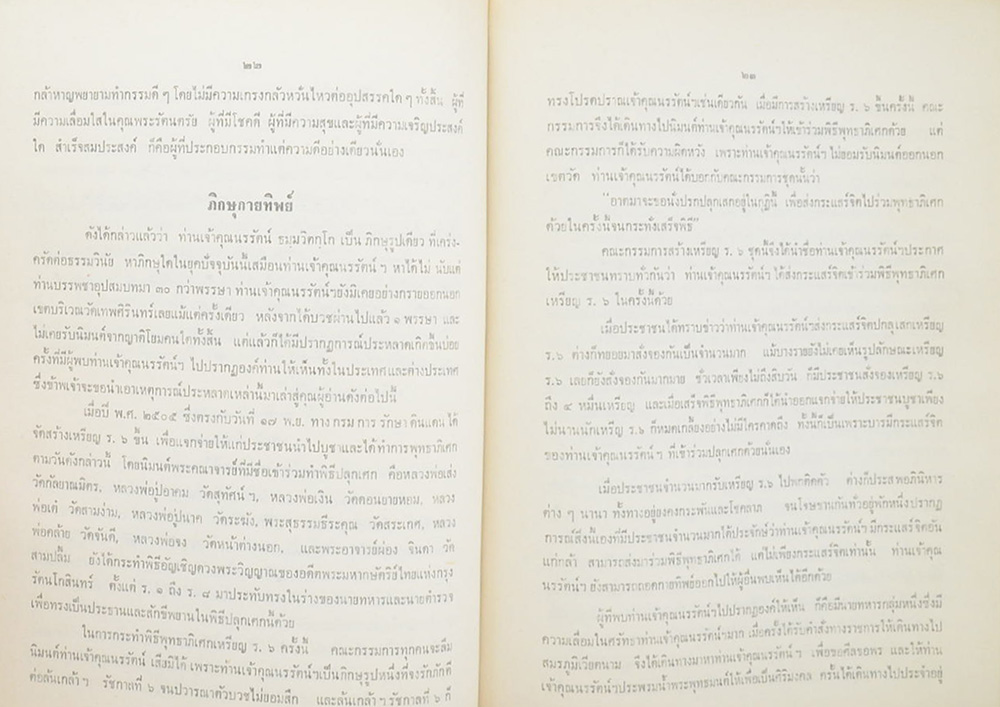 ๒๒
กล้าหาญพยายามทำกรรมดี ๆ โดยไม่มีความเกรงกลัวหวั่นไหวต่ออุปสรรคใด ๆ ทั้งสิ้น ผู้ที่
มีความเลื่อมใสในคุณพระรัตนตรัย ผู้ที่มีโชคดี ผู้ที่มีความสุขและผู้ที่มีความเจริญประสงค์
ใด สำเร็จสมประสงค์ ก็คือผู้ที่ประกอบกรรมทำแต่ความดีอย่างเดียวนั่นเอง
ภิกษุกายทิพย์
ดังได้กล่าวแล้วว่า ท่านเจ้าคุณนรรัตน์ ธมฺมวิตกฺโก เป็น ภิกษุรูปเดียว ที่เคร่ง-
ครัดต่อธรรมวินัย หาภิกษุใดในยุคปัจจุบันนี้เสมือนท่านเจ้าคุณนรรัตน์ ฯ หาได้ไม่ นับแต่
ท่านบรรพชาอุปสมบทมา ๓๐ กว่าพรรษา ท่านเจ้าคุณนรรัตน์ฯยังมิเคยย่างกรายออกนอก
เขตบริเวณวัดเทพศิรินทร์เลยแม้แต่ครั้งเดียว หลังจากได้บวชผ่านไปแล้ว ๑ พรรษา และ
ไม่เคยรับนิมนต์จากญาติโยมคนใดทั้งสิ้น แต่แล้วก็ได้มีปรากฏการณ์ประหลาดเกิดขึ้นบ่อย
ครั้งที่มีผู้พบท่านเจ้าคุณนรรัตน์ฯ ไปปรากฏองค์ท่านให้เห็นทั้งในประเทศและต่างประเทศ
ซึ่งข้าพเจ้าจะขอนำเอาเหตุการณ์ประหลาดเหล่านี้มาเล่าสู่คุณผู้อ่านดังต่อไปนี้
เมื่อปี พ.ศ. ๒๕๐๕ ซึ่งตรงกับวันที่ ๑๗ พ.ย. ทาง กรม การ รักษา ดินแดน ได้
จัดสร้างเหรียญ ร. ๖ ขึ้น เพื่อแจกจ่ายให้แก่ประชาชนนำไปบูชาและได้ทำการพุทธาภิเศก
ตามวันดังกล่าวนี้ โดยนิมนต์พระคณาจารย์ที่มีชื่อเข้าร่วมทำพิธีปลุกเศก คือหลวงพ่อเส่ง
วัดกัลยาณมิตร, หลวงพ่อปู่อาคม วัดสุทัศน์ ฯ, หลวงพ่อเงิน วัดดอนยายหอม, หลวง
พ่อเต๋ วัดสามง่าม, หลวงพ่อปู่นาค วัดระฆัง, พระสุธรรมธีระคุณ วัดสระเกศ, หลวง
พ่อคล้าย วัดจันดี, หลวงพ่อจง วัดหน้าต่างนอก, และพระอาจารย์ผ่อง จินดา วัด
สามปลื้ม ยังได้กระทำพิธีอัญเชิญดวงพระวิญญาณของอดีตพระมหากษัตริย์ไทยแห่งกรุง
รัตนโกสินทร์ ตั้งแต่ ร. ๑ ถึง ร. ๘ มาประทับทรงในร่างของนายทหารและนายตำรวจ
เพื่อทรงเป็นประธานและสักขีพยานในพิธีปลุกเศกนี้ด้วย
ในการกระทำพิธีพุทธาภิเศกเหรียญ ร. ๖ ครั้งนี้ คณะกรรมการทุกคนจะลืม
นิมนต์ท่านเจ้าคุณนรรัตน์ เสียมิได้ เพราะท่านเจ้าคุณนรรัตน์ฯเป็นภิกษุรูปหนึ่งที่จงรักภักดี
ต่อล้นเกล้าฯ รัชกาลที่ ๖ จนปวารณาตัวบวชไม่ยอมสึก และล้นเกล้าฯ รัชกาลที่ ๖ ก็
๒๓
ทรงโปรดปราณเจ้าคุณนรรัตน์ฯเช่นเดียวกัน เมื่อมีการสร้างเหรียญ ร. ๖ ขึ้นครั้งนี้ คณะ
กรรมการจึงได้เดินทางไปนิมนต์ท่านเจ้าคุณนรรัตน์ฯให้เข้าร่วมพิธีพุทธาภิเศกด้วย แต่
คณะกรรมการก็ได้รับความผิดหวัง เพราะท่านเจ้าคุณนรรัตน์ฯ ไม่ยอมรับนิมนต์ออกนอก
เขตวัด ท่านเจ้าคุณนรรัตน์ได้บอกกับคณะกรรมการชุดนั้นว่า
“อาตมาจะขอนั่งปรกปลุกเสกอยู่ในกุฏินี้ เพื่อส่งกระแสร์จิตไปร่วมพุทธาภิเศก
ด้วยในครั้งนี้จนกระทั่งเสร็จพิธี”
คณะกรรมการสร้างเหรียญ ร. ๖ ชุดนี้จึงได้นำชื่อท่านเจ้าคุณนรรัตน์ฯประกาศ
ให้ประชาชนทราบทั่วกันว่า ท่านเจ้าคุณนรรัตน์ฯ ได้ส่งกระแสร์จิตเข้าร่วมพิธีพุทธาภิเศก
เหรียญ ร. ๖ ในครั้งนี้ด้วย
เมื่อประชาชนได้ทราบข่าวว่าท่านเจ้าคุณนรรัตน์ฯส่งกระแสร์จิตปลุกเสกเหรียญ
ร.๖ ต่างก็ทยอยมาสั่งจองกันเป็นจำนวนมาก แม้บางรายยังไม่เคยเห็นรูปลักษณะเหรียญ
ร.๖ เลยก็ยังสั่งจองกันมากมาย ชั่วเวลาเพียงไม่ถึงสิบวัน ก็มีประชาชนสั่งจองเหรียญ ร.๖
ถึง ๔ หมื่นเหรียญ และเมื่อเสร็จพิธีพุทธาภิเศกก็ได้นำออกแจกจ่ายให้ประชาชนบูชาเพียง
ไม่นานนักเหรียญ ร.๖ ก็หมดเกลี้ยงอย่างไม่มีใครคาดถึง ทั้งนี้ก็เป็นเพราะบารมีกระแสร์จิต
ของท่านเจ้าคุณนรรัตน์ ฯ ที่เข้าร่วมปลุกเศกด้วยนั่นเอง
เมื่อประชาชนจำนวนมากรับเหรียญ ร.๖ ไปพกติดตัว ต่างก็ประสพอภินิหาร
ต่าง ๆ นานา ทั้งทางอยู่ยงคงกระพันและโชคลาภ จนโจษขานกันทั่วอยู่พักหนึ่งปรากฏ
การณ์สิ่งนี้เองที่มีประชาชนจำนวนมากได้ประจักษ์ว่าท่านเจ้าคุณนรรัตน์ฯ มีกระแสร์จิตอัน
แก่กล้า สามารถส่งมาร่วมพิธีพุทธาภิเศกได้ แต่ไม่เพียงกระแสร์จิตเท่านั้น ท่านเจ้าคุณ
นรรัตน์ฯ ยังสามารถถอดกายทิพย์ออกไปให้ผู้อื่นพบเห็นได้อีกด้วย
ผู้ที่พบท่านเจ้าคุณนรรัตน์ฯไปปรากฏองค์ให้เห็น ก็คือมีนายทหารกลุ่มหนึ่งซึ่งมี
ความเลื่อมในศรัทธาท่านเจ้าคุณนรรัตน์ฯมาก เมื่อครั้งได้รับคำสั่งทางราชการให้เดินทางไป
สมรภูมิเวียดนาม จึงได้เดินทางมาหาท่านเจ้าคุณนรรัตน์ฯ เพื่อขอศีลขอพร และให้ท่าน
เจ้าคุณนรรัตน์ฯประพรมน้ำพระพุทธมนต์ให้เพื่อเป็นศิริมงคล ครั้นได้เดินทางไปประจำอยู่